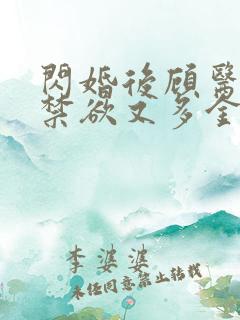 閃婚後顾醫
禁欲又多金
李婆婆
未经同意禁止转载